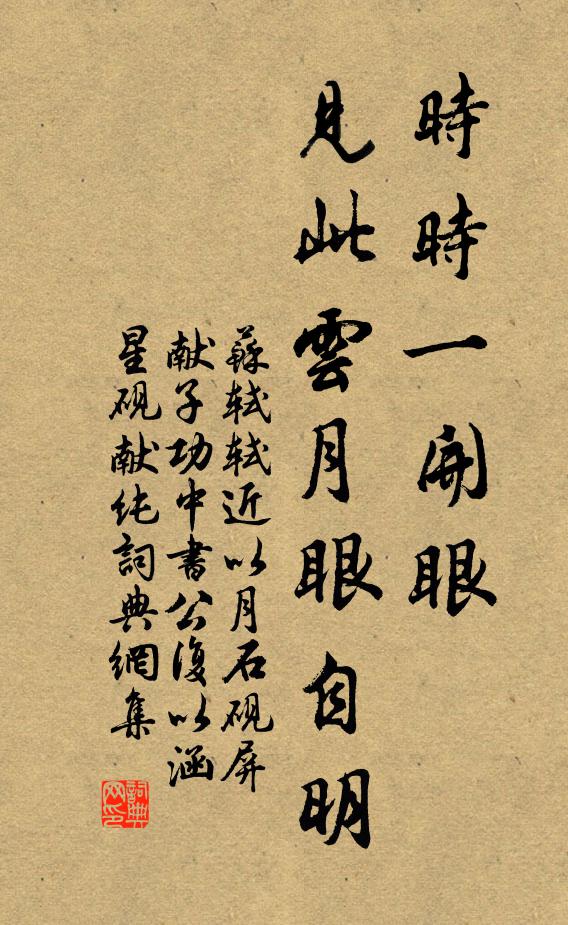 時時一開眼
見此雲月眼自明
蘇軾軾近以月石硯屏
献子功中書公復以涵
星硯献纯詞典網集
詞典网印